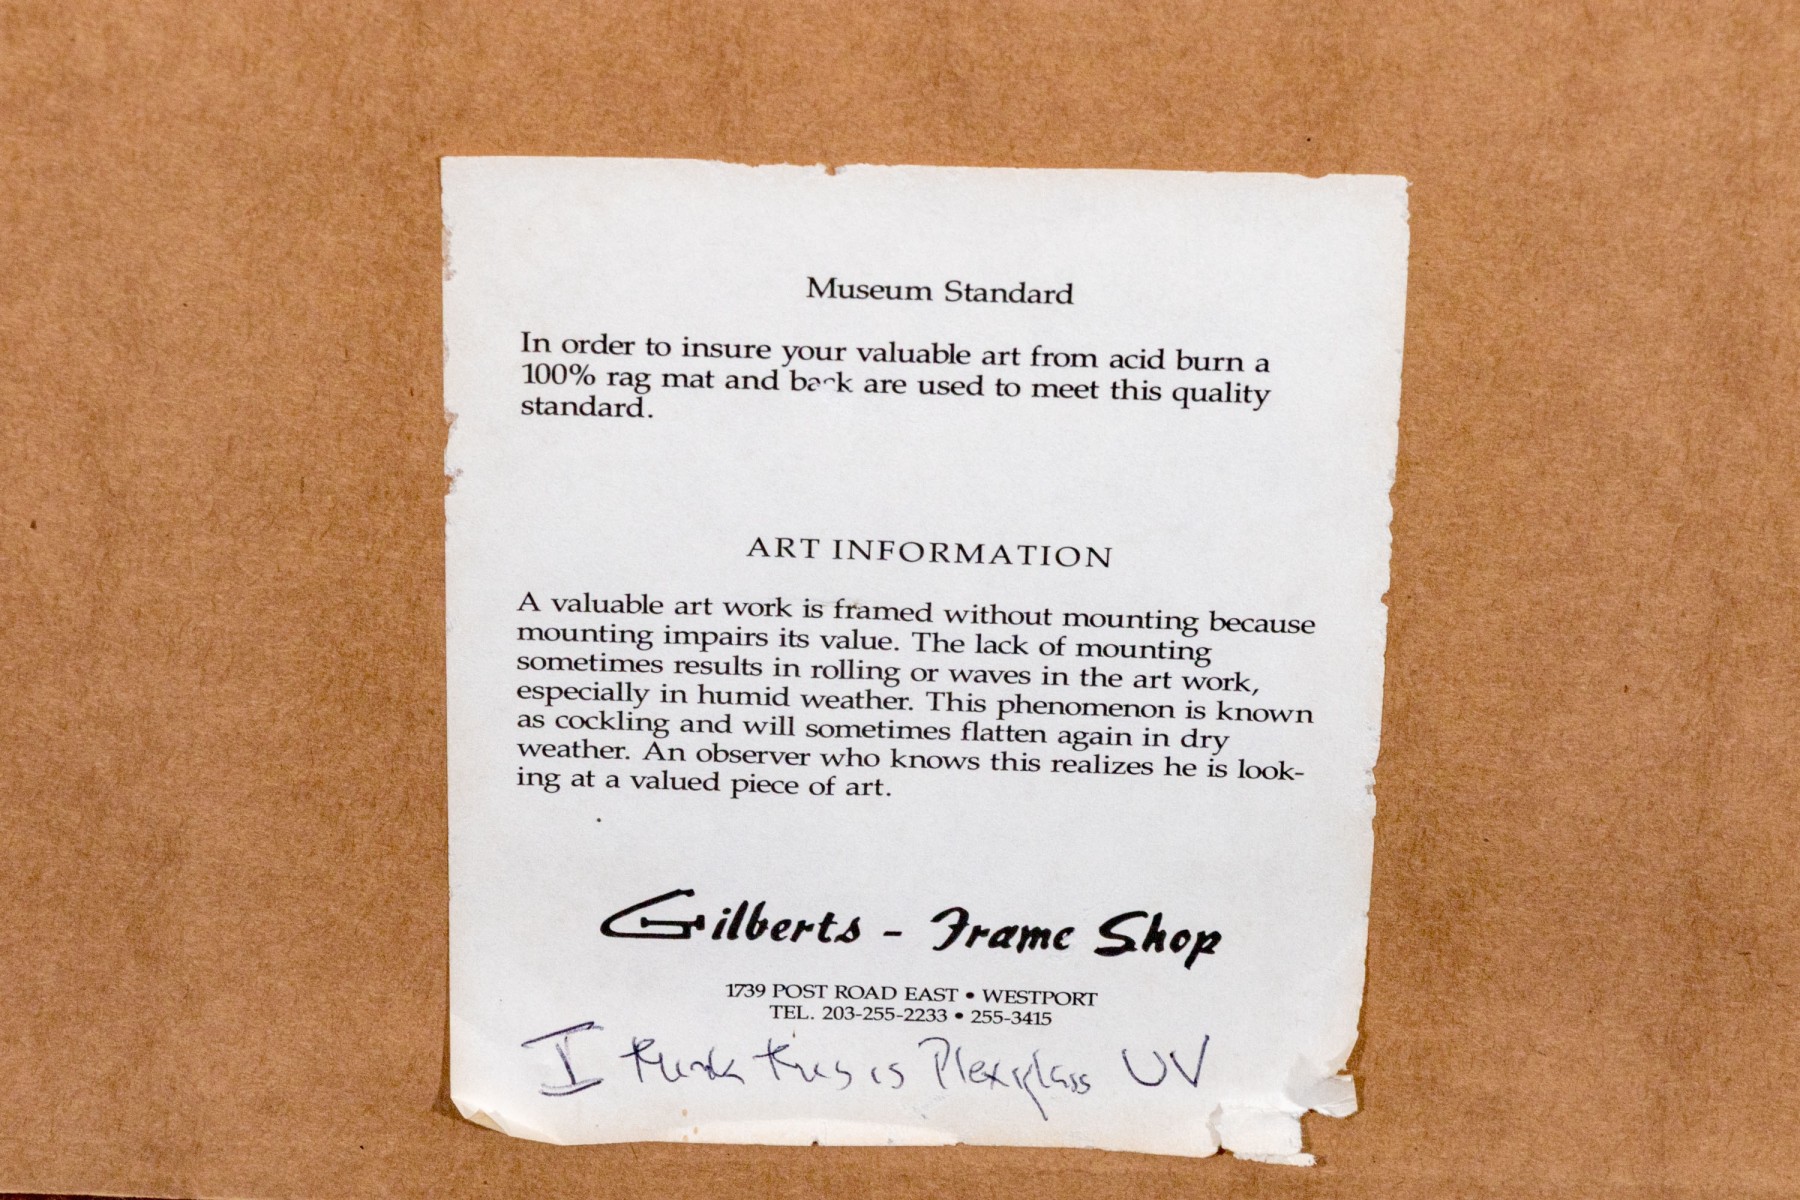 Museum Standard
In order to insure your valuable art from acid burn a
100% rag mat and back are used to meet this quality
standard.
ART INFORMATION
A valuable art work is framed without mounting because
mounting impairs its value. The lack of mounting
sometimes results in rolling or waves in the art work,
especially in humid weather. This phenomenon is known
as cockling and will sometimes flatten again in dry
weather. An observer who knows this realizes he is look-
ing at a valued piece of art.
Gilberts - Frame Shop
1739 POST ROAD EAST • WESTPORT
TEL. 203-255-2233 • 255-3415
I think this is Plexiglass UV